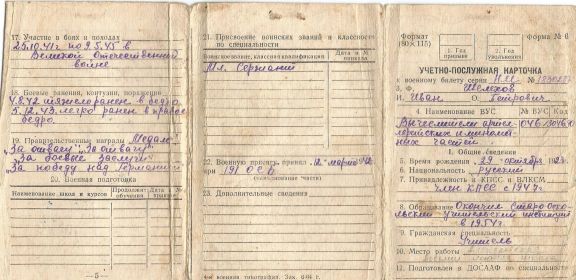 17. Участие в боях и походах
25.10.41г по 9.5.45 в
Великой Отечественной
войне
18. Боевые ранения, контузии, поражения
4.8.42 тяжело ранен в бедро
5.12.43. легко ранен в правое
бедро.
19. Правительственные награды Медаль
"За отвагу", "За отвагу"
"За боевые заслуги"
"За победу над Германией
20. Военная подготовка
Наименование школ и курсов
Продолжит. обучения
Дата
—5—
21. Присвоение воинских званий и классности
по специальности
Воинское звание, классная квалификация
Дата и № приказа
Мл. Сержант
22. Военную присягу принял 12 марта 42
при 191 ОСБ
23. Дополнительные сведения
Формат
(80×115)
Форма № 6
1. Год
призыва
2. Год
увольнения
УЧЕТНО-ПОСЛУЖНАЯ КАРТОЧКА
к военному билету серии НМ №
3. Ф.
Шелехов
И. Иван О. Петрович
4. Наименование ВУС № ВУС Код
Вычислители
частей
I. Общие сведения
5. Время рождения 29 октября 1923
6. Национальность русский
7. Принадлежность к КПСС и ВЛКСМ
член КПСС с 1947г.
8. Образование Окончил Старооскольский
учительский институт
в 1954г.
9. Гражданская специальность
Учитель
10. Место работы
12. Подготовлен в ДОСААФ по специальности